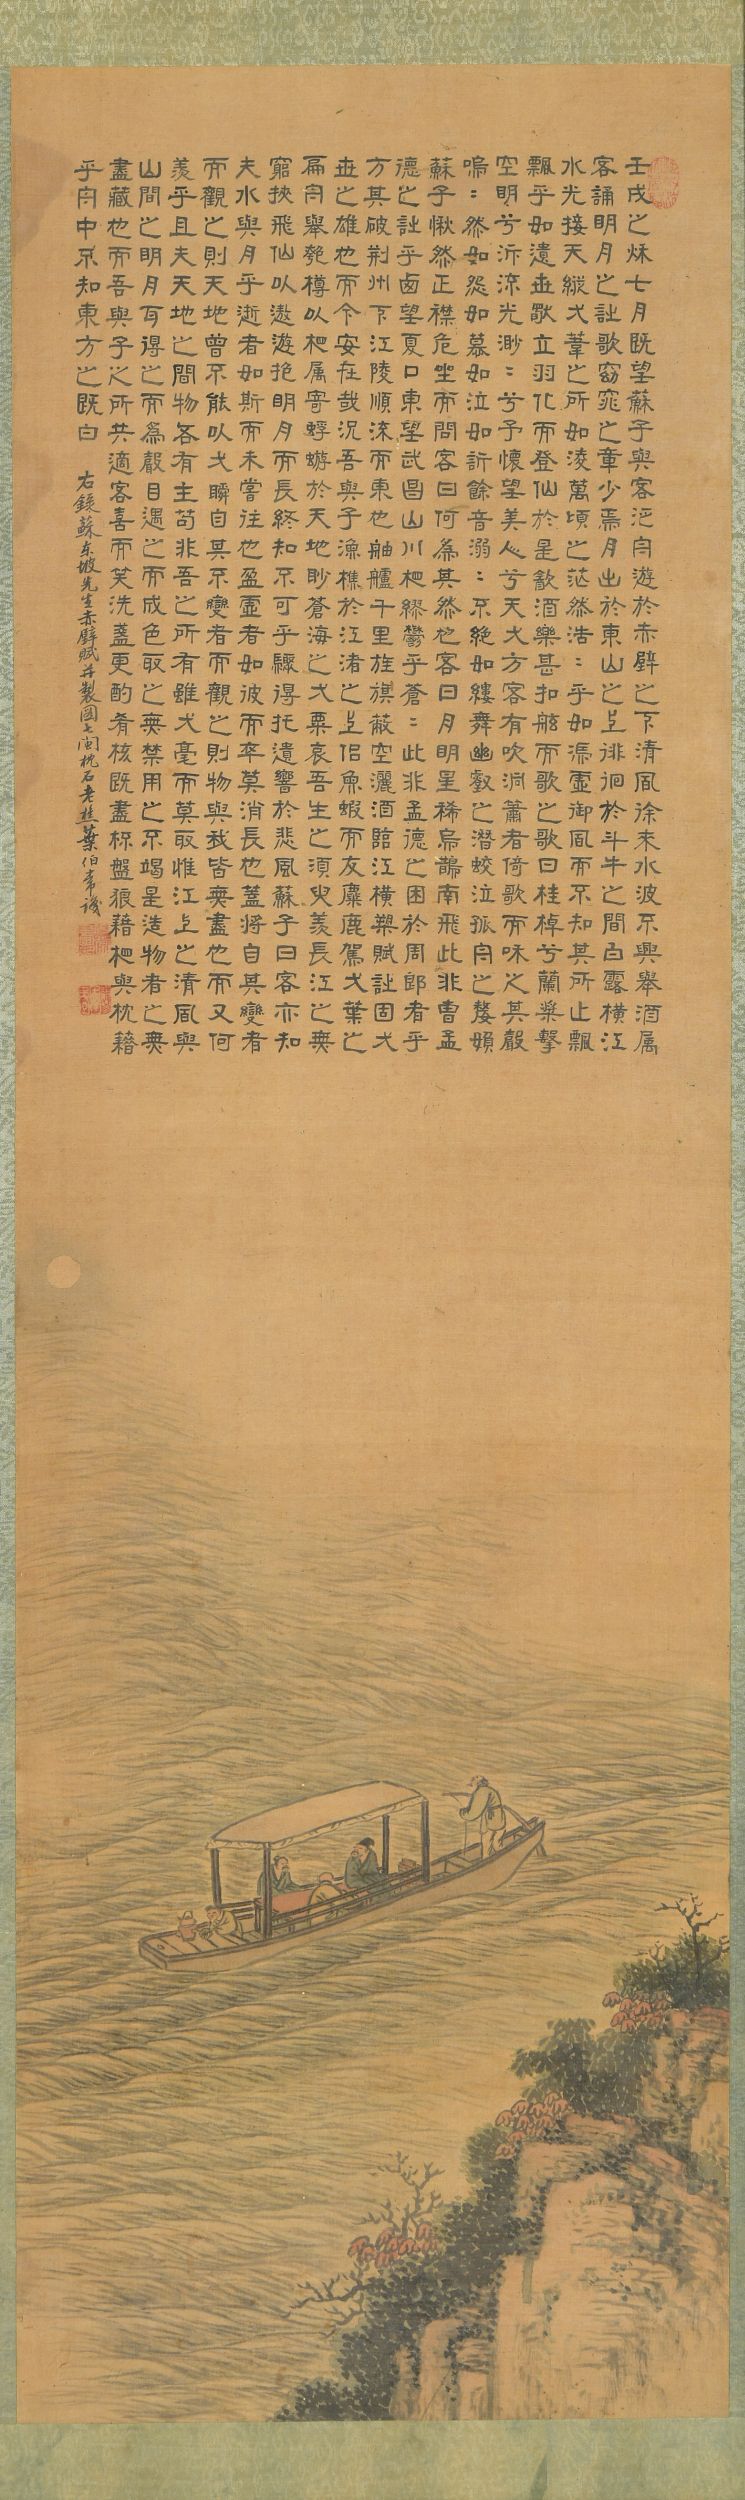 壬戌之秌七月既望蘇子與客泛舟遊於赤壁之下清風徐来水波不興舉酒属
客誦明月之詩歌窈窕之章少焉月出於東山之上徘徊於斗牛之間白露橫江
水光接天縱一葦之所如淩萬頃之茫然浩〻乎如馮虛御風而不知其所止飄
飄乎如遺世獨立羽化而登仙於是飲酒樂甚扣舷而歌之歌曰桂棹兮蘭槳擊
空明兮泝流光渺〻兮予懷望美人兮天一方客有吹洞簫者倚歌而和之其聲
嗚〻然如怨如慕如泣如訴餘音溺〻不絕如縷舞幽壑之潛蛟泣孤舟之嫠婦
蘇子愀然正襟危坐而問客曰何為其然也客曰月明星稀烏鵲南飛此非曹孟
德之詩乎西望夏口東望武昌山川相繆鬱乎蒼〻此非孟德之困於周郎者乎
方其破荊州下江陵順流而東也舳艫千里旌旗蔽空灑酒臨江橫槊賦詩固一
世之雄也而今安在哉況吾與子漁樵於江渚之上侶魚蝦而友麋鹿駕一葉之
扁舟舉匏樽以相属寄蜉蝣於天地眇蒼海之一粟哀吾生之須臾羨長江之無
窮挾飛仙以遨遊抱明月而長終知不可乎驟得托遺響於悲風蘇子曰客亦知
夫水與月乎逝者如斯而未嘗往也盈虛者如彼而卒莫消長也蓋將自其變者
而觀之則天地曾不能以一瞬自其不變者而觀之則物與我皆無盡也而又何
羨乎且夫天地之間物各有主苟非吾之所有雖一毫而莫取惟江上之清風與
山間之明月耳得之而為聲目遇之而成色取之無禁用之不竭是造物者之無
盡藏也而吾與子之所共適客喜而笑洗盞更酌肴核既盡杯盤狼藉相與枕藉
乎舟中不知東方之既白
右錄蘇東坡先生赤壁賦并製圖七閩枕石老樵葉伯常識